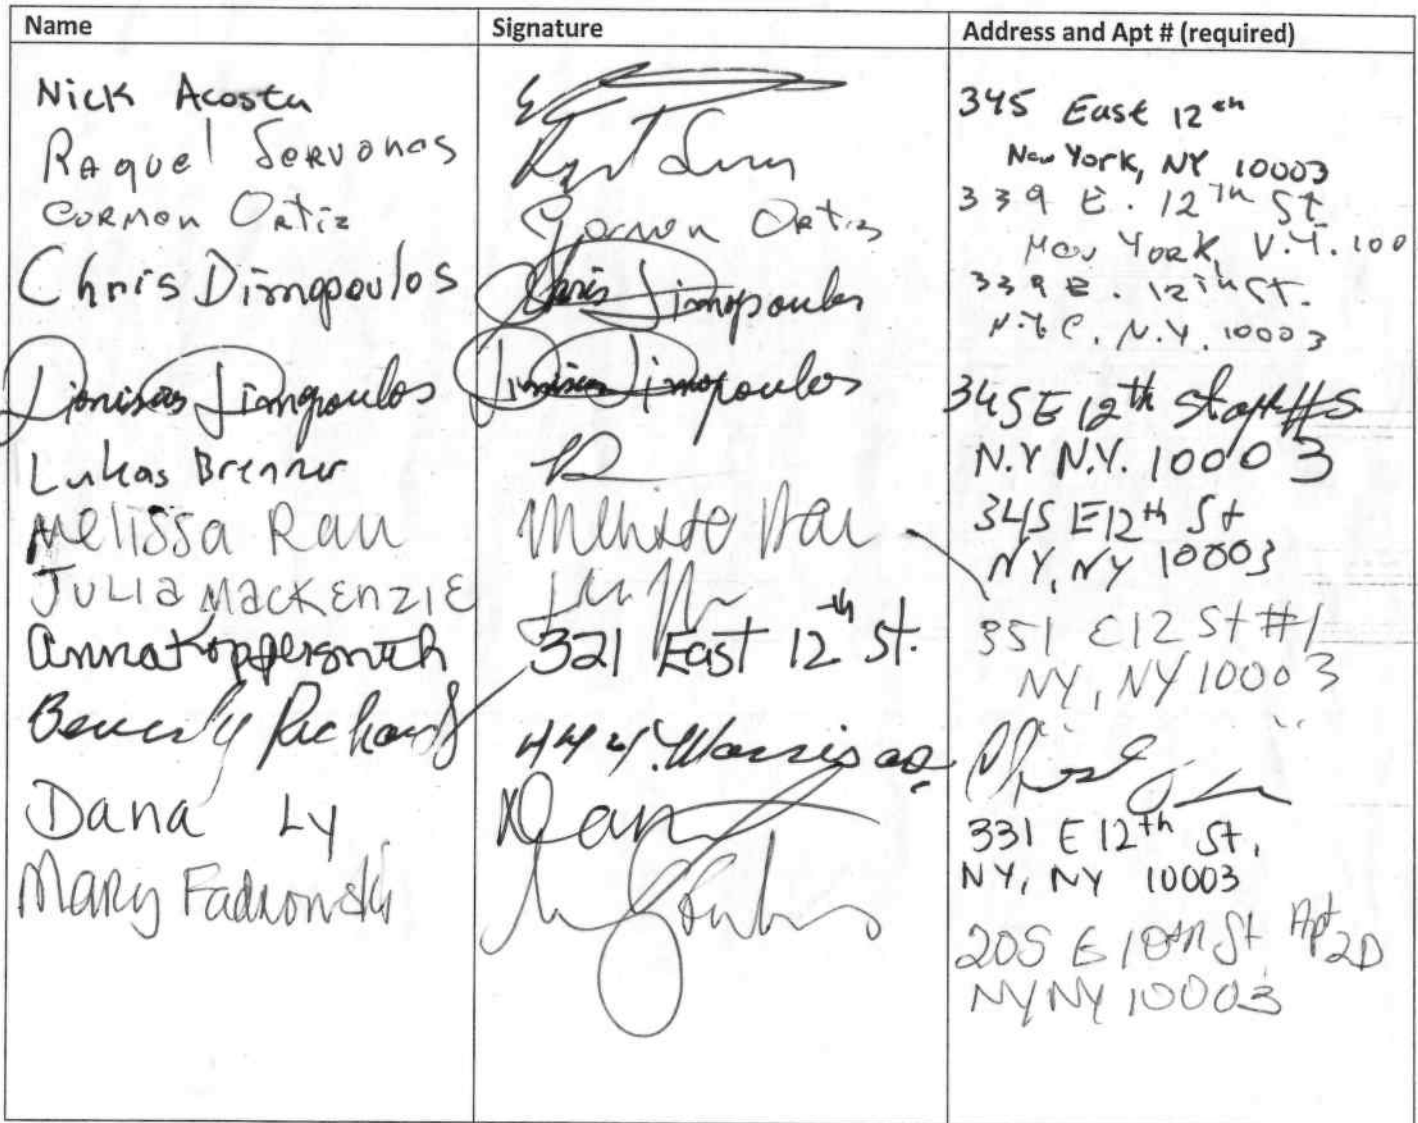 Name Signature Address and Apt # (required)
Nick Acosta
345 East 12th
Raquel Servonas
New York, NY 10003
Carmen Ortiz Carmen Ortiz
339 E. 12th St
New York, N.Y. 100
Chris Dimopoulos Chris Dimopoulos
339 E. 12th St.
N.Y.C. N.Y. 10003
Dionisios Dimopoulos Dionisios Dimopoulos
345 E 12th St apt #5
N.Y N.Y. 10003
Lukas Brenner
345 E12th St
NY, NY 10003
Melissa Rau Melissa Rau
Julia Mackenzie
351 E12 St #1
NY, NY 10003
Anna Koppersmith 321 East 12th St.
Beverly Richards
Dana Ly Dan
331 E 12th St,
NY, NY 10003
Mary Fadrowski
205 E 10th St Apt 2D
NY NY 10003